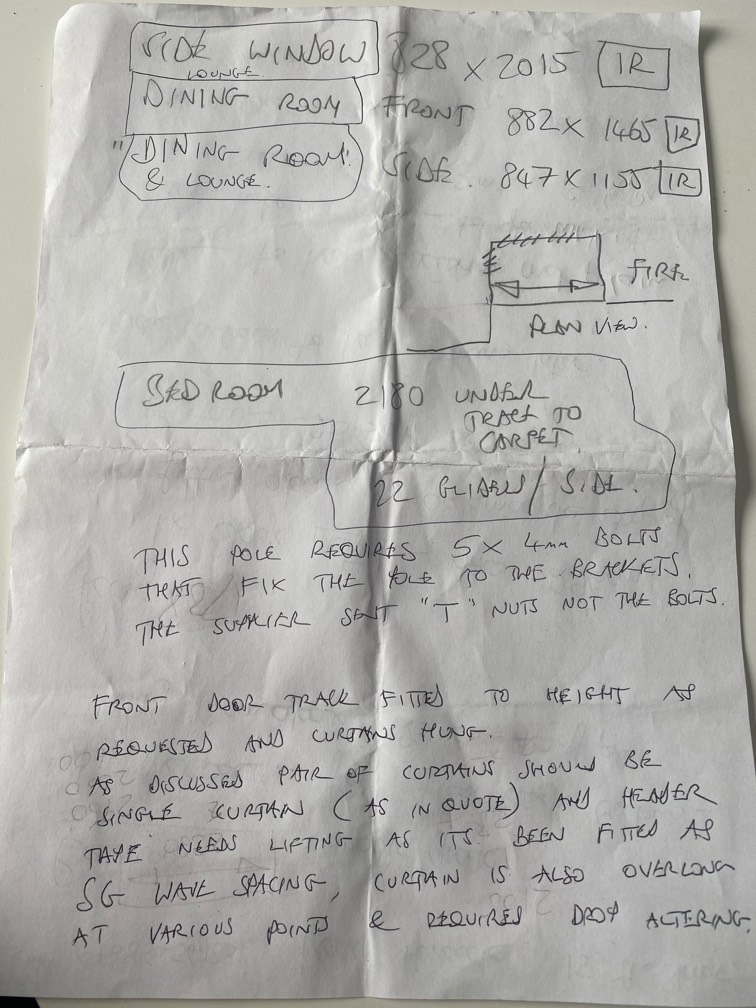 SIDE WINDOW 828 X 2015 IR
LOUNGE
DINING ROOM FRONT 882 X 1465 IR
"DINING ROOM" SIDE. 847 X 1155 IR
& LOUNGE.
FIRE
PLAN VIEW.
BEDROOM 2180 UNDER
TRACK TO
CARPET.
22 GLIDERS / SIDE.
THIS POLE REQUIRES 5X 4mm BOLTS
THAT FIX THE POLE TO THE BRACKETS.
THE SUPPLIER SENT "T" NUTS NOT THE BOLTS.
FRONT DOOR TRACK FITTED TO HEIGHT AS
REQUESTED AND CURTAINS HUNG.
AS DISCUSSED PAIR OF CURTAINS SHOULD BE
SINGLE CURTAIN (AS IN QUOTE) AND HEADER
TAPE NEEDS LIFTING AS ITS BEEN FITTED AS
SG WAVE SPACING, CURTAIN IS ALSO OVERLONG
AT VARIOUS POINTS & REQUIRES DROP ALTERING.